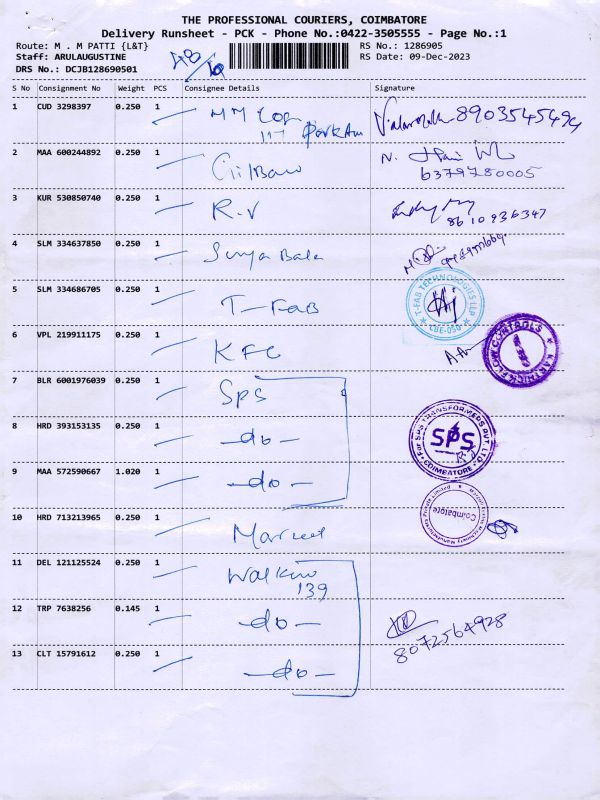 THE PROFESSIONAL COURIERS, COIMBATORE
Delivery Runsheet - PCK - Phone No.:0422-3505555 - Page No.:1
Route: M . M PATTI {L&T}
RS No.: 1286905
Staff: ARULAUGUSTINE
RS Date: 09-Dec-2023
DRS No.: DCJB128690501
S No Consignment No Weight PCS Consignee Details Signature
1 CUD 3298397 0.250 1 MM 8903545494
2 MAA 600244892 0.250 1 N. 6379780005
3 KUR 530850740 0.250 1 R.V 8610936347
4 SLM 334637850 0.250 1 Surya Bala
5 SLM 334686705 0.250 1 T-FAB
T-FAB TECHNOLOGIES LLP
CBE-050
6 VPL 219911175 0.250 1 KFC
KARTHICK FLOW CONTROLS
7 BLR 6001976039 0.250 1 SPS
8 HRD 393153135 0.250 1 -do-
For SPS TRANSFORMERS PVT. LTD.
SPS
COIMBATORE
9 MAA 572590667 1.020 1 -do-
10 HRD 713213965 0.250 1
Coimbatore
11 DEL 121125524 0.250 1
139
12 TRP 7638256 0.145 1 -do-
8072564928
13 CLT 15791612 0.250 1 -do-